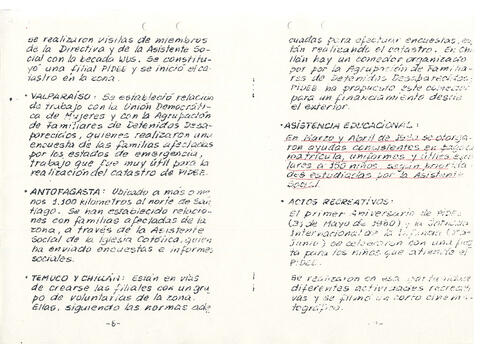 se realizaron visitas de miembros
de la Directiva y de la Asistente So-
cial con la becada WUS. Se constitu-
yó una filial PIDEE y se inició el ca-
tastro en la zona.
• VALPARAÍSO: Se estableció relación
de trabajo con la Unión Democráti-
ca de Mujeres y con la Agrupación
de Familiares de Detenidos Desa-
parecidos, quienes realizaron una
encuesta de las familias afectadas
por los estados de emergencia,
trabajo que fue muy útil para la
realización del catastro de PIDEE.
• ANTOFAGASTA: Ubicado a más o me-
nos 1.100 kilómetros al norte de San-
tiago. Se han establecido relacio-
nes con familias afectadas de la
zona, a través de la Asistente
Social de la Iglesia Católica, quien
ha enviado encuestas e informes
sociales.
• TEMUCO Y CHILLÁN: Están en vías
de crearse las filiales con un gru-
po de voluntarias de la zona.
Ellas, siguiendo las normas ade-
-6-
cuadas para efectuar encuestas, es-
tán realizando el catastro. En Chi-
llán hay un comedor organizado
por la Agrupación de Familia-
res de Detenidos Desaparecidos.
PIDEE ha propuesto este comedor
para un financiamiento desde
el exterior.
• ASISTENCIA EDUCACIONAL:
En Marzo y Abril de se otorga-
ron ayudas consistentes en pago de
matrícula, uniformes y útiles esco-
lares a 150 niños, según priorida-
des estudiadas por la Asistente
Social.
• ACTOS RECREATIVOS:
el primer Aniversario de PIDEE
(31 de Mayo de 1980) y la
Internacional de la Infancia
Junio) se celebraron con una fies-
ta para los niños que atiende el
PIDEE.
Se realizaron en esa oportunidad
diferentes actividades recreati-
vas y se filmó un corto cinema-
tográfico.